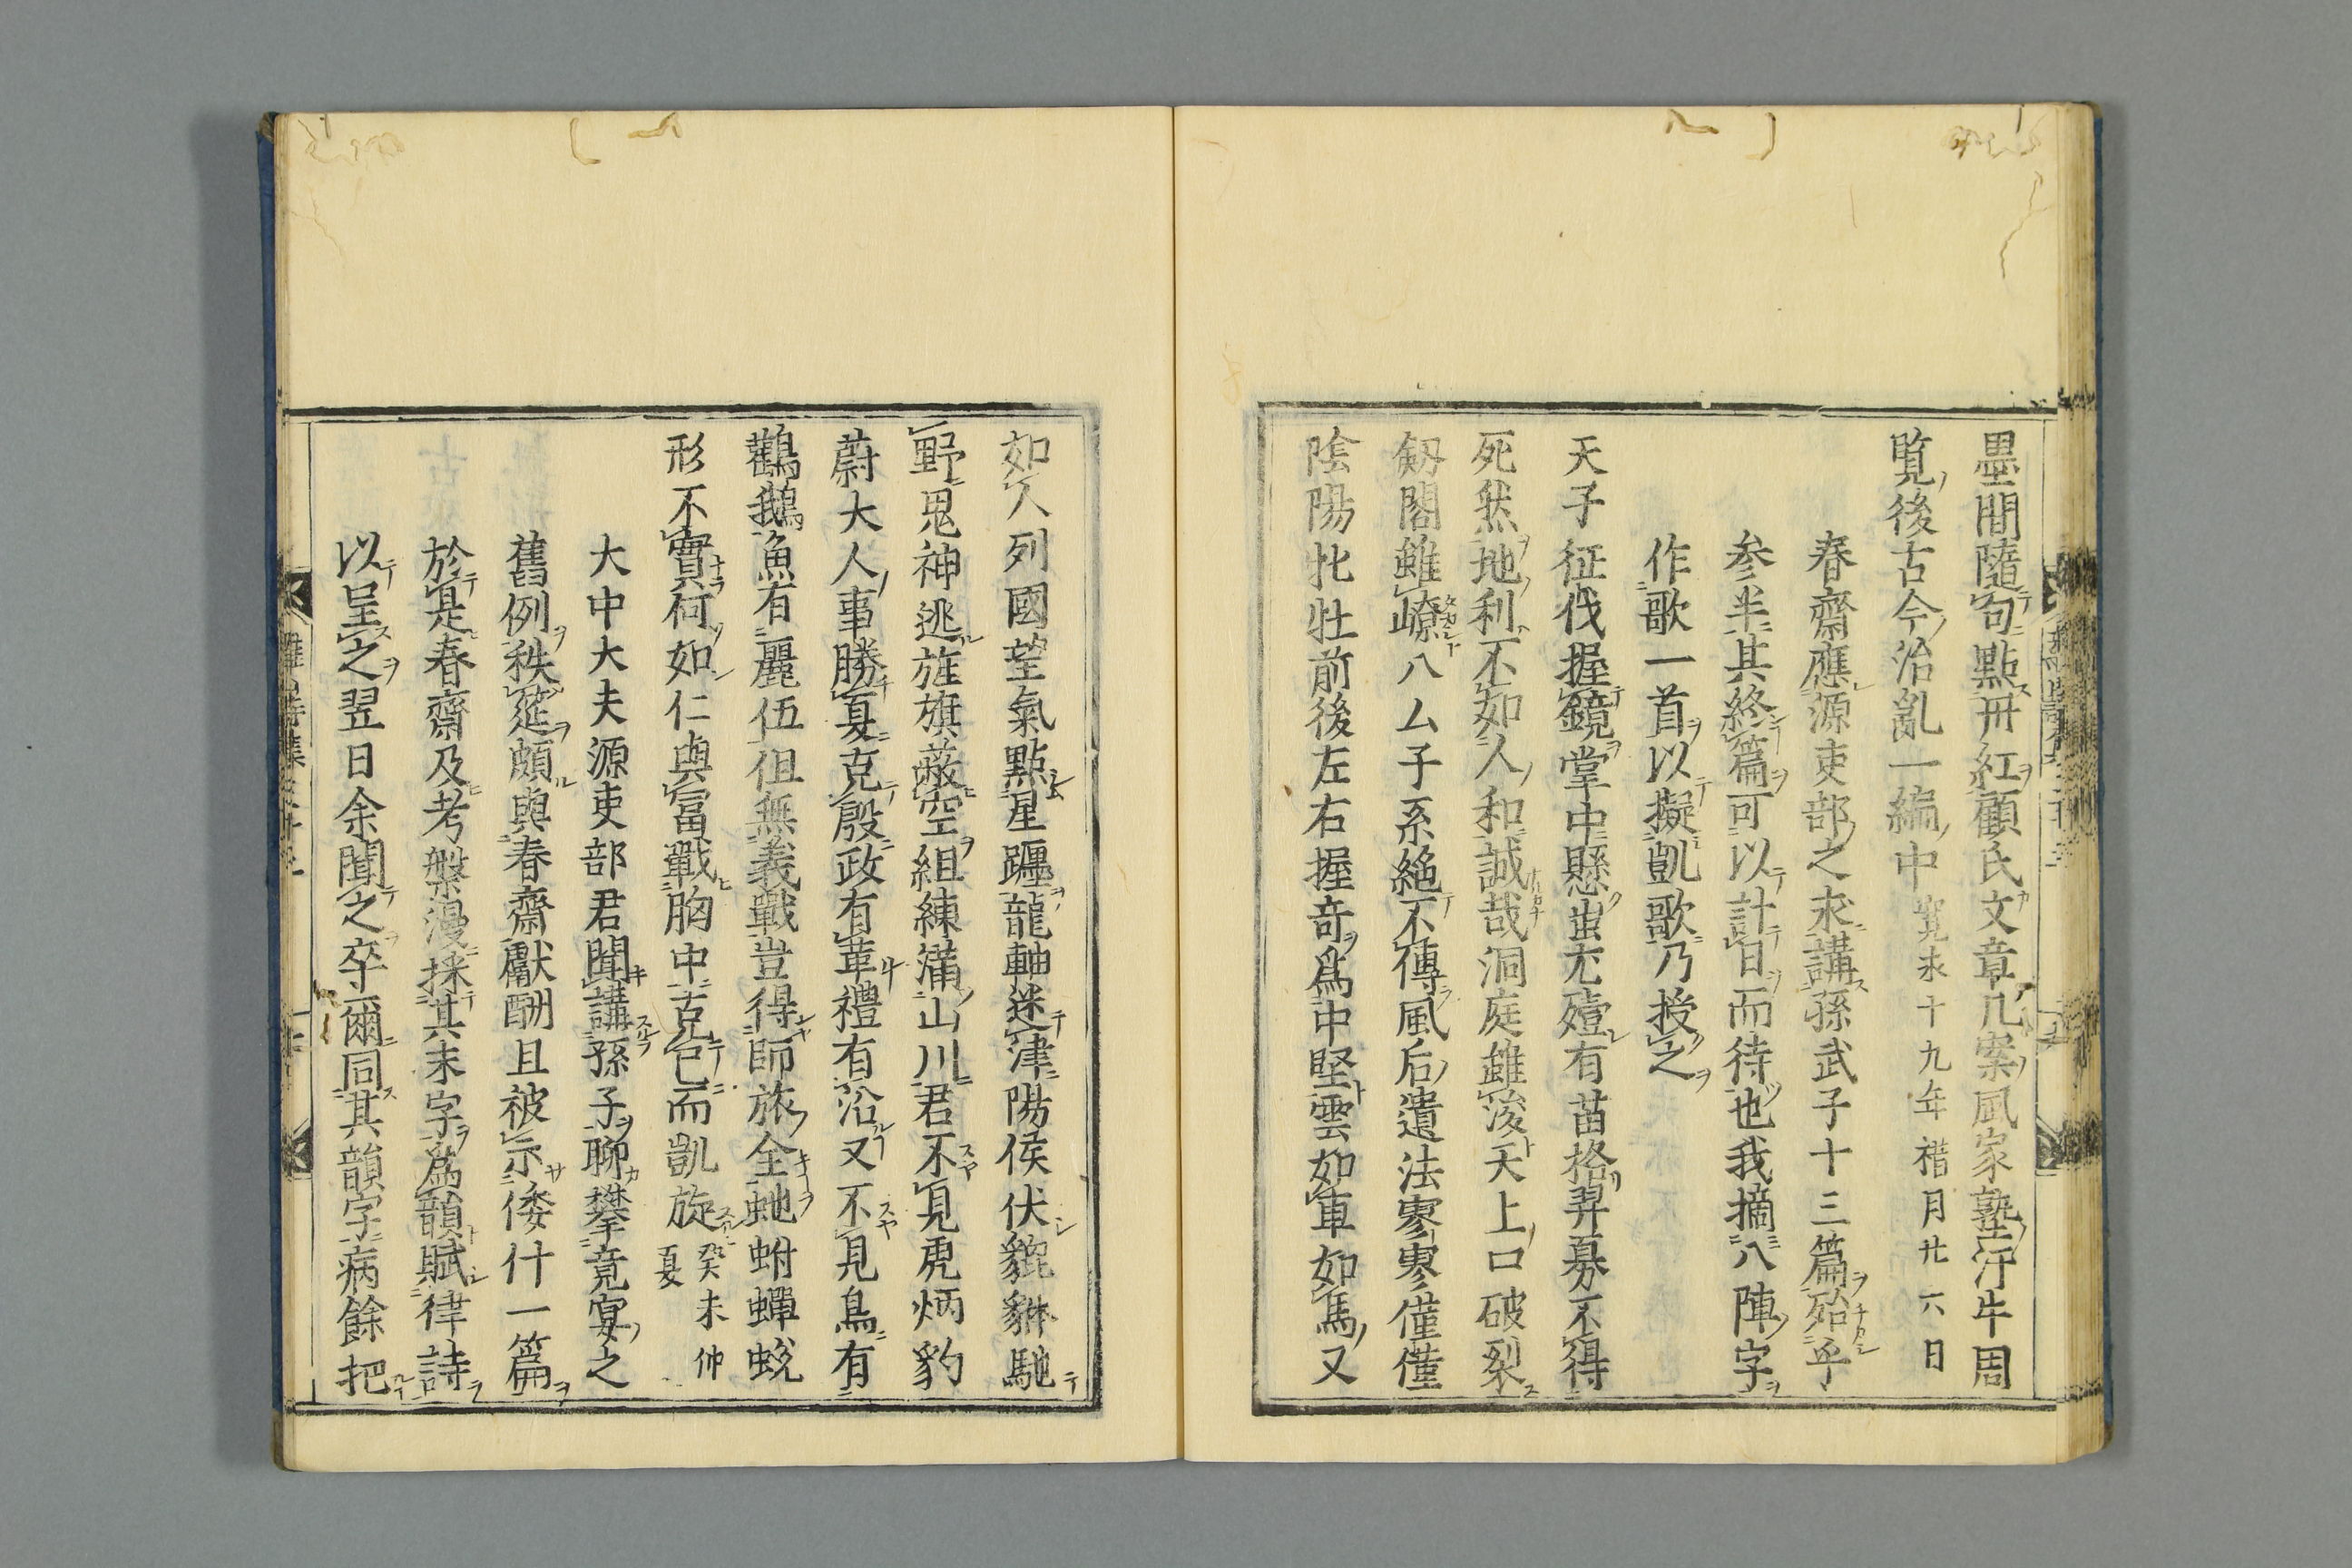 墨間隨句點丹紅顧氏文章几案風家塾汗牛周
覧後古今治亂一編中寛永十九年楷月廿六日
春齋應源吏部之求講孫武子十三篇殆乎
参半其終篇可以計日而待也我摘八陣字
作歌一首以擬凱歌乃授之
天子征伐握鏡掌中懸蚩尤殪有苗格羿募不得
死然地利不如人和誠哉洞庭雖浚天上口破裂
劔閣雖嶛八厶子系絶不傳風后遺法寥寥僅僅
陰陽牝牡前後左右握奇爲中堅雲如車如馬又
如人列國望氣點星躔龍軸迷津陽侯伏貔貅馳
野鬼神逃旌旗蔽空組練滿山川君不見虎炳豹
蔚大人事勝夏克殷政有革禮有沿又不見鳥有
鸛鵝魚有麗伍伹無義戰豈得師旅全虵蚹蟬蛻
形不實何如仁與冨戰胸中克已而凱旋癸未仲
夏
大中大夫源吏部君聞講孫子聊攀竟宴之
舊例秩筵頗與春齋獻酬且被示倭什一篇
於是春齋及考槃漫採其末字爲韻賦律詩
以呈之翌日余聞之卒爾同其韻字病餘把